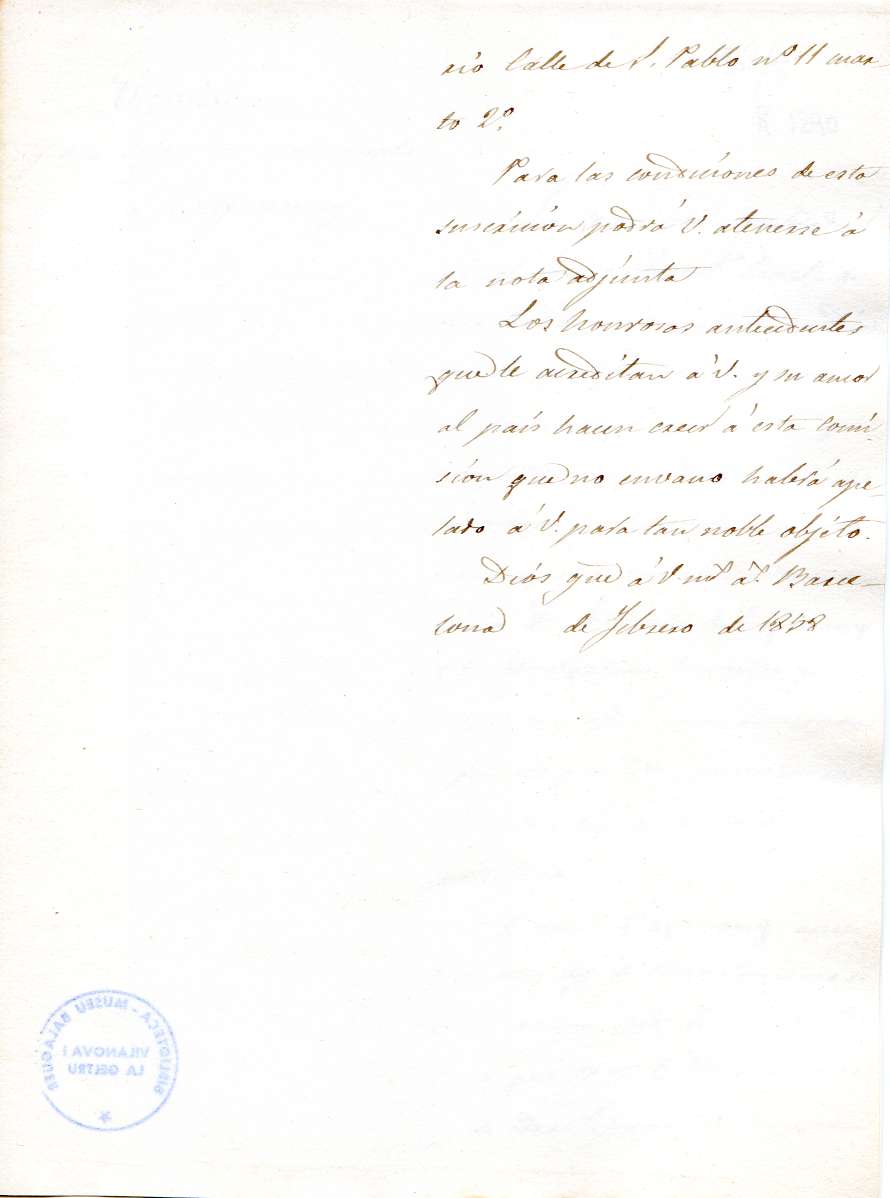 rio Calle de S. Pablo nº 11 cuar-
to 2º.
Para las condiciones de esta
suscricion podrá V. atenerse á
la nota adjunta
Los honrosos antecedentes
que le acreditan á V. y su amor
al país hacen creer á esta Comi
sion que no envano habrá ape-
lado á V. para tan noble objéto.
Diós gue á V. ms. as. Barce-
lona de Febrero de 1858
BIBLIOTECA - MUSEU BALAGUER
VILANOVA I
LA GELTRU